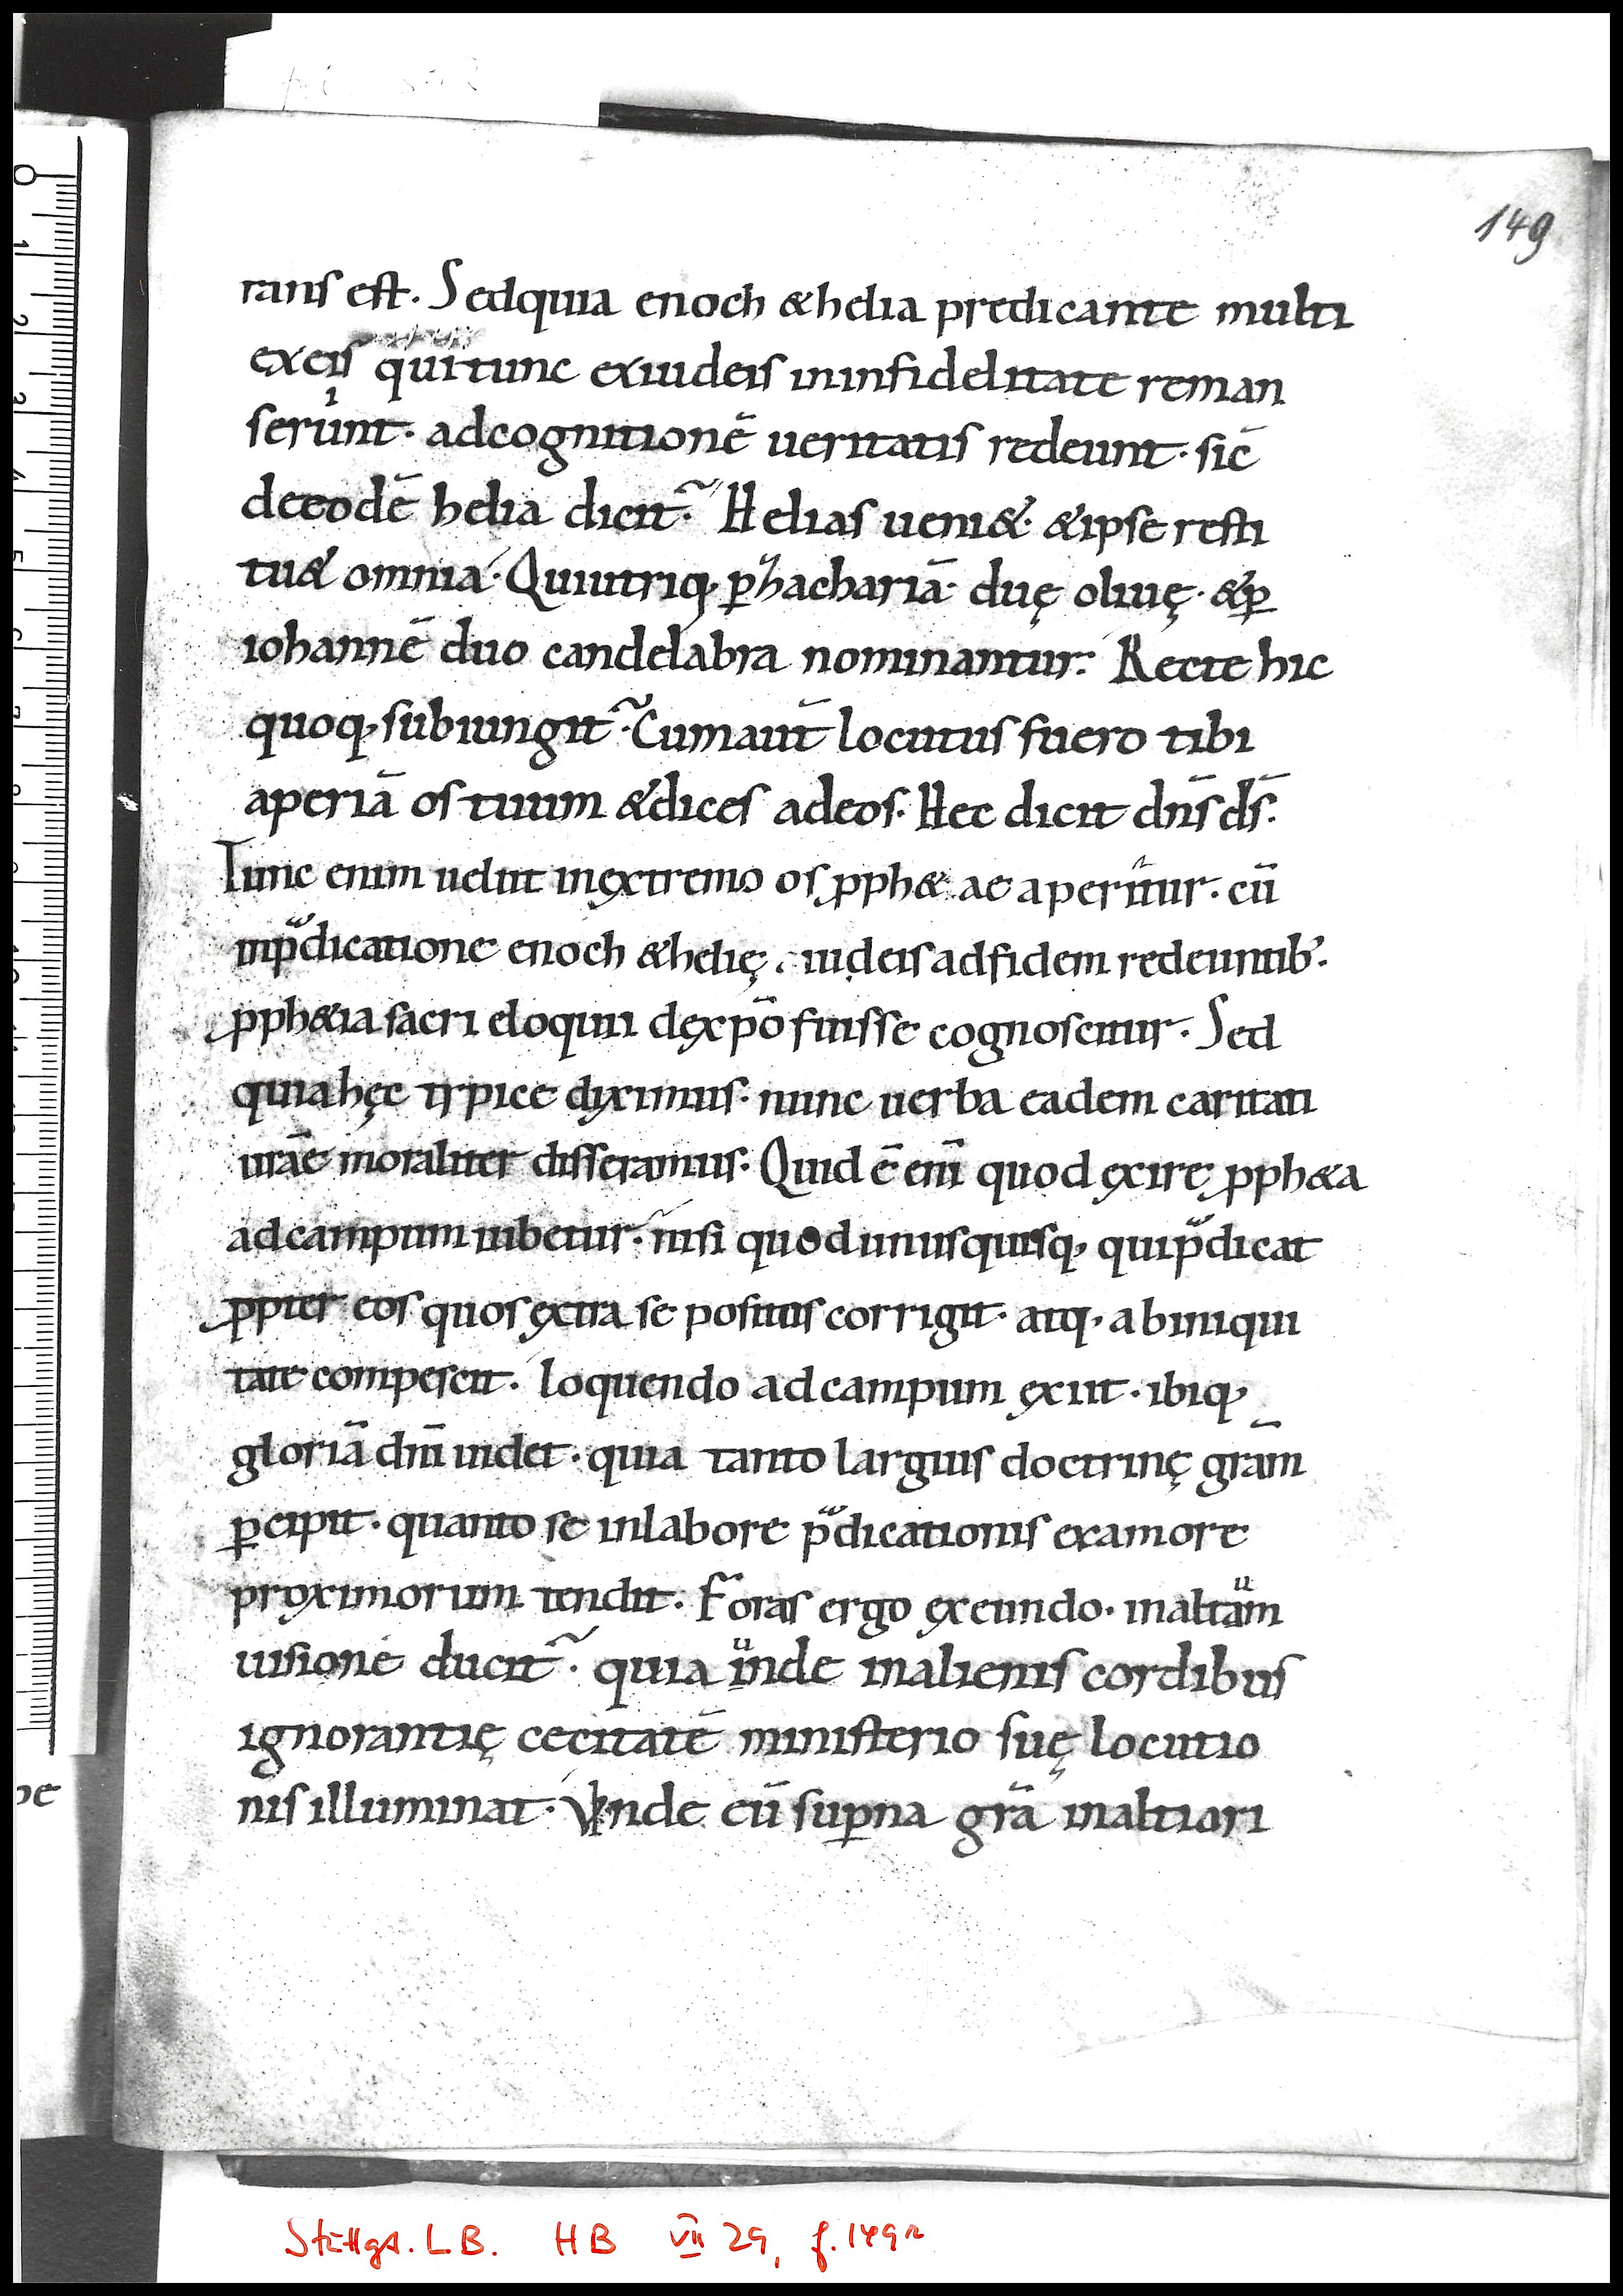 149
rans est. Sedquia enoch &helia predicante multi
exeis qui tunc exiudeis ininfidelitate reman
serunt. adcognitionē ueritatis redeunt. sic̄
deeodē helia dicit͂. Helias ueni&. &ipse resti
tu& omnia. Quiutriq; ꝑzachariā. duę oliuę. &ꝑ
iohannē duo candelabra nominantur. Recte hic
quoq; subiungit͂. Cumaut̄ locutus fuero tibi
aperiā os tuum &dices adeos. Hec dicit dn̄s ds̄.
Tunc enim uelut inextremo os ꝓph&ae aperitur. cū
inp̄dicatione enoch &helię, iudeis adfidem redeuntib;.
ꝓph&ia sacri eloquii dexp̄o fuisse cognoscitur. Sed
quiahęc typice diximus. nunc uerba eadem caritati
ur̄ae moraliter disseramus. Quid ē eni̅ quod exire ꝓph&a
adcampum iubetur. nisi quod unusquisq; quip̄dicat
ꝓpter eos quos extra se positus corrigit. atq; abiniqui
tate compescit. loquendo adcampum exiit. ibiq;
gloriā dn̄i uidet. quia tanto largius doctrinę gr̄am
ꝑcipit. quanto se inlabore p̄dicationis examore
proximorum tendit. Foras ergo exeundo. inaltam
uisionē ducit͂. quia inde inalienis cordibus
ignorantię cecitatē ministerio suę locutio
nis illuminat. Vnde cū suꝑna gr̄a inaltiori
0
1
2
3
4
5
6
7
8
9
pe
Stuttga. L.B. HB VII 29, f. 149r